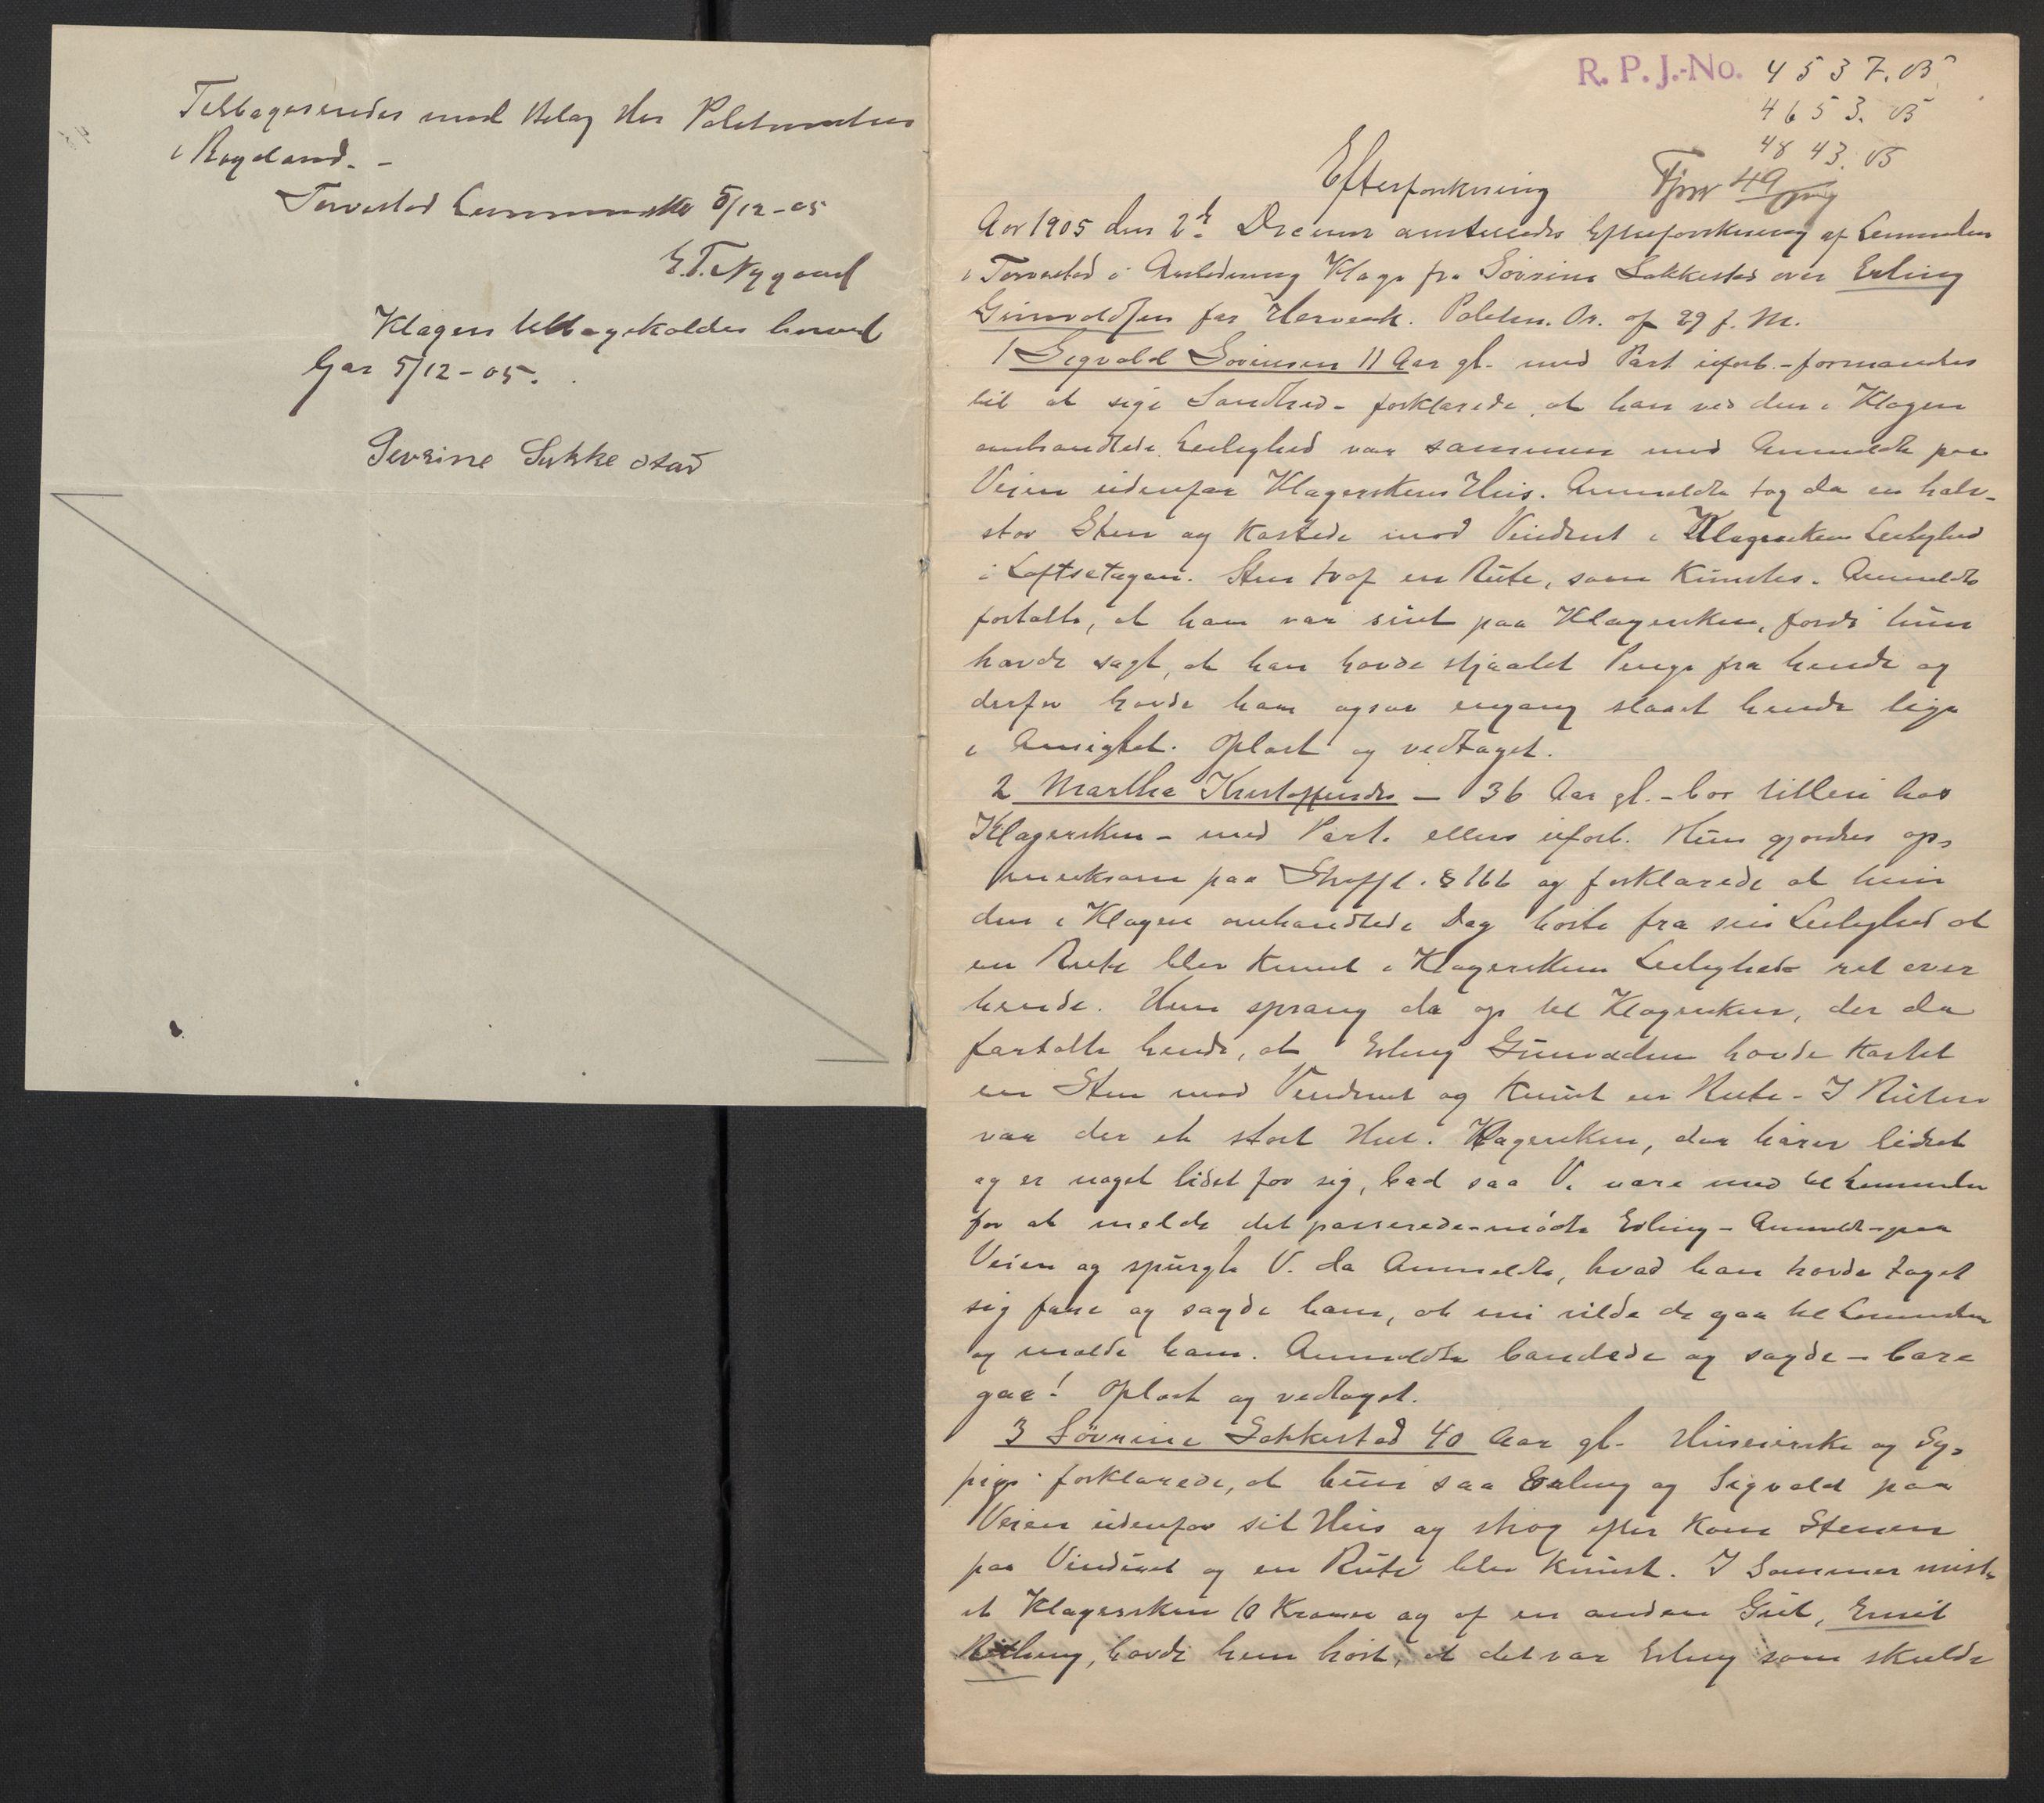 Tilbagesendes med Bilag Hr Politimester
i Rogaland. -
Torvestad Lensmandsktr 5/12-05
E.T. Nygaard
Klagen tilbagekaldes herved
Gar 5/12-05.
Sevrine Sukkestad
R. P. J.-No. 4537.05
4653.05
4843.05
Efterforskning
49
Aar 1905 den 2d Decembr anstilledes Efterforskning af Lensmanden
i Torvestad i Anledning Klage fra Sövrine Sakkestad over Erling
Gunvaldsen for Hærværk. Politm. Or. af 29 f. M.
1 Sigvald Sörensen 11 Aar gl. med Part uforb. - formanedes
til at sige Sandhed - forklarede, at han ved den i Klagen
omhandlede Leilighed var sammen med Anmeldte paa
Veien udenfor Klagerskens Hus. Anmeldte tog da en halv-
stor Sten og kastede mod Vinduet i Klagerskens Leilighed
i Loftsetagen. Sten traf en Rute, som knustes. Anmeldte
fortalte, at han var sint paa Klagersken, fordi hun
havde sagt, at han havde stjaalet Penge fra hende og
derfor havde han ogsaa engang slaaet hende lige
i Ansigtet. Oplæst og vedtaget.
2 Marthe Kristoffersdtr - 36 Aar gl. - bor tilleie hos
Klagersken - med Part. ellers uforb. Hun gjordes op-
merksom paa Straffl. § 166 og forklarede at hun
den i Klagen omhandlede Dag hörte fra sin Leilighed at
en Rute blev knust i Klagerskens Leilighed ret over
hende. Hun sprang da op til Klagersken, der da
fortalte hende, at Erling Gunvaldsen havde kastet
en Sten mod Vinduet og knust en Rute - I Ruten
var der et stort Hul. Klagersken, der hörer lidet
og er noget lidet for sig, bad saa V. være med til Lensmanden
for at melde det passerede - mödte Erling - Anmeldte - paa
Veien og spurgte V. da Anmeldte, hvad han havde taget
sig fore og sagde ham, at nu vilde de gaa til Lensmanden
og melde ham. Anmeldte bandede og sagde - bare
gaa! Oplæst og vedtaget.
3 Sövrine Sakkestad 40 Aar gl. Huseierske og Sy-
pige forklarede, at hun saa Erling og Sigvald paa
Veien udenfor sit Hus og strag efter kom Stenen
paa Vinduet og en Rute blev knust. I Sommer mist-
et Klagersken 10 Kroner og af en anden Gut, Emil
havde hun hört, at det var Erling som skulde